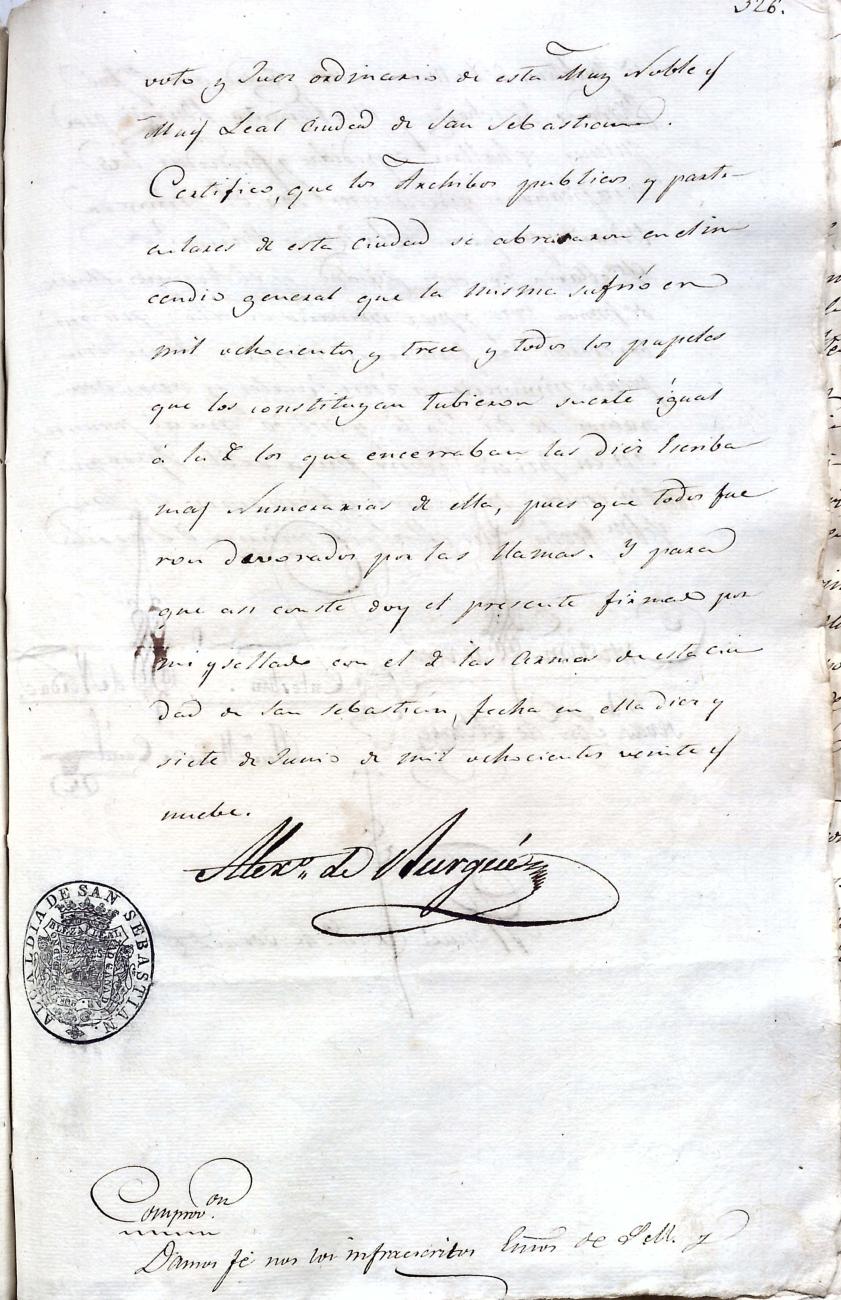 326.
voto y Juez ordinario de esta Muy Noble y
Muy Leal Ciudad de San Sebastian.
Certifico, que los Archibos publicos y parti-
culares de esta Ciudad se abrasaron en el in
cendio general que la misma sufrió en
mil ochocientos y trece y todos los papeles
que los constituyan tubieron suerte igual
á la de los que encerraban las diez Escriba
nias Numerarias de ella, pues que todos fue
ron devorados por las llamas. Y para
que asi conste doy el presente firmado por
mi y sellado con el de las Armas de esta ciu
dad de San Sebastian, fecha en ella diez y
siete de Junio de mil ochocientos veinte y
nuebe.
Alexo. de Burgué
ALCALDIA DE SAN SEBASTIAN.
Comprovon.
Damos fé nos los infraescritos Essnos de S.M. y